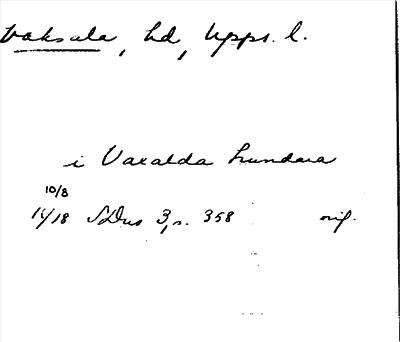 Vaksala, hd, Upps. l.
i Vaxalda hundara
10/8
1418 SDns 3, s. 358 orig.